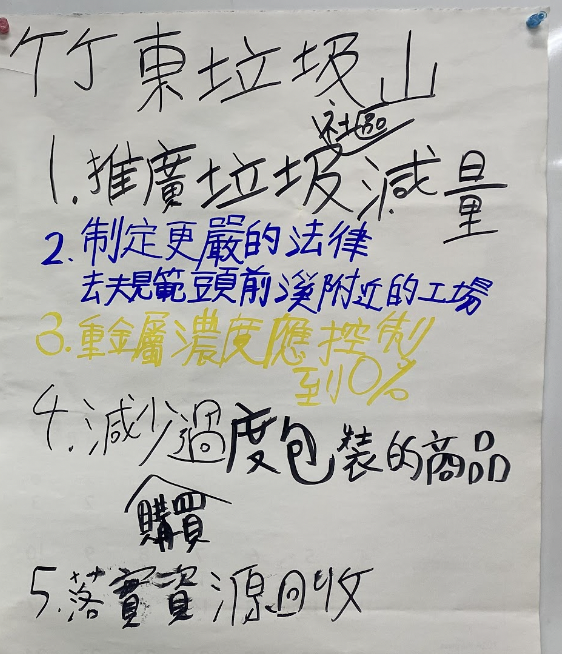 竹東垃圾山
社區
1.推廣垃圾減量
2.制定更嚴的法律
去規範頭前溪附近的工場
3.重金屬濃度應控制
到0%
4.減少過度包裝的商品
購買
5.落實資源回收